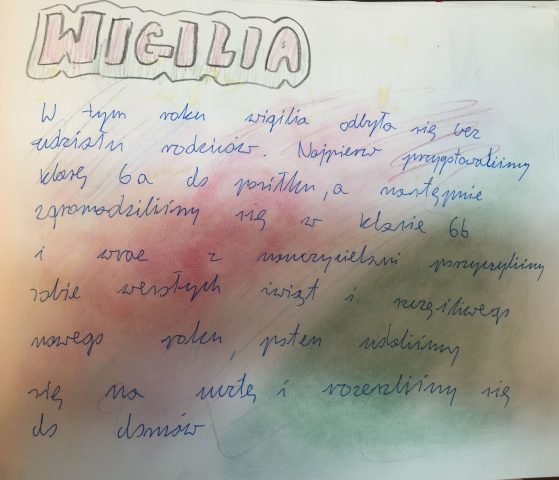 WIGILIA
W tym roku wigilia odbyła się bez
udziału rodziców. Najpierw przygotowaliśmy
klasę 6a do posiłku, a następnie
zgromadziliśmy się w klasie 6b
i wraz z nauczycielami pożyczyliśmy
sobie wesołych świąt i szczęśliwego
nowego roku, potem udaliśmy
się na ucztę i rozeszliśmy się
do domów